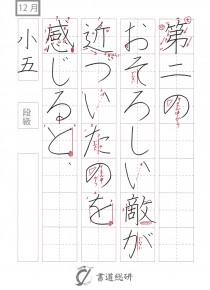 12月
第二の
おそろしい敵が
近づいたのを
感じると、
小五
段級
書道総研